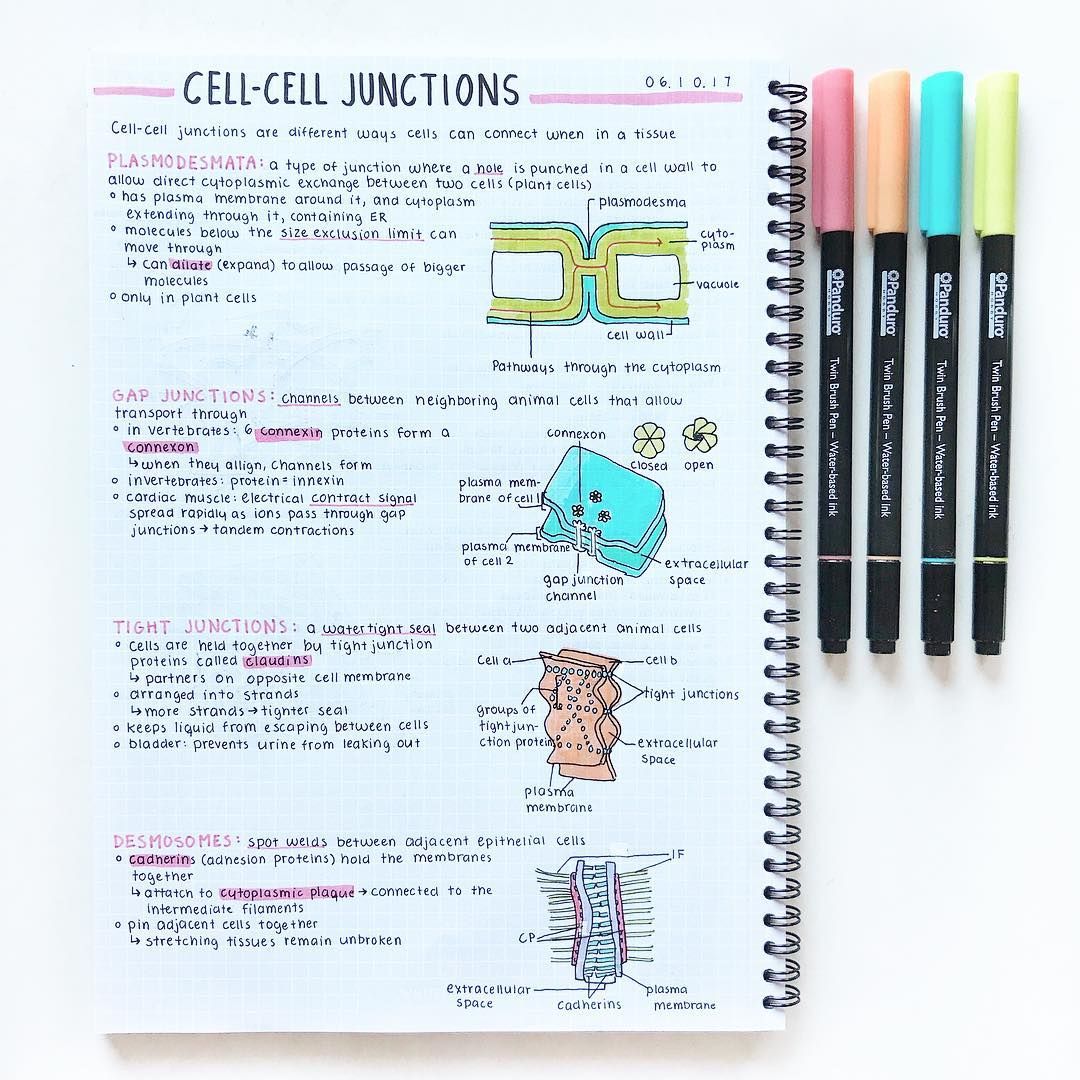 CELL-CELL JUNCTIONS
06.10.17
Cell-cell junctions are different ways cells can connect when in a tissue
PLASMODESMATA: a type of junction where a hole is punched in a cell wall to
allow direct cytoplasmic exchange between two cells (plant cells)
° has plasma membrane around it, and cytoplasm
extending through it, containing ER
° molecules below the size exclusion limit can
move through
↳ can dilate (expand) to allow passage of bigger
molecules
° only in plant cells
plasmodesma
cyto-
plasm
vacuole
cell wall
Pathways through the cytoplasm
GAP JUNCTIONS: channels between neighboring animal cells that allow
transport through
° in vertebrates: 6 connexin proteins form a
connexon
↳ when they allign, channels form
° invertebrates: protein = innexin
° cardiac muscle: electrical contract signal
spread rapidly as ions pass through gap
junctions → tandem contractions
connexon
closed
open
plasma mem-
brane of cell 1
plasma membrane
of cell 2
gap junction
channel
extracellular
space
TIGHT JUNCTIONS: a watertight seal between two adjacent animal cells
° Cells are held together by tight junction
proteins called claudins
↳ partners on opposite cell membrane
° arranged into strands
↳ more strands → tighter seal
° keeps liquid from escaping between cells
° bladder: prevents urine from leaking out
Cell a
cell b
tight junctions
groups of
tight jun-
ction protein
extracellular
space
plasma
membrane
DESMOSOMES: spot welds between adjacent epithelial cells
° cadherins (adhesion proteins) hold the membranes
together
↳ attatch to cytoplasmic plaque → connected to the
intermediate filaments
° pin adjacent cells together
↳ stretching tissues remain unbroken
IF
CP
extracellular
space
cadherins
plasma
membrane
Panduro
Twin Brush Pen – Water-based ink
Panduro
Twin Brush Pen – Water-based ink
Panduro
Twin Brush Pen – Water-based ink
Panduro
Twin Brush Pen – Water-based ink